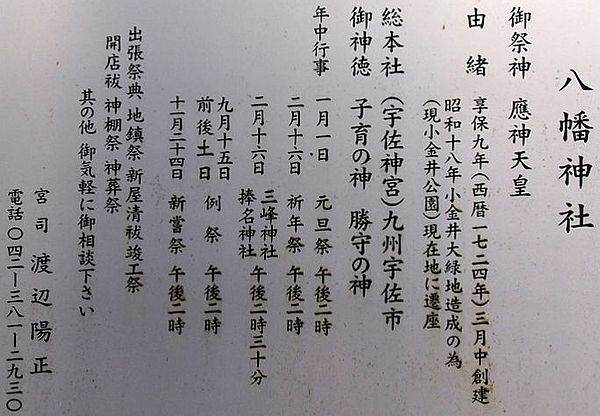 八幡神社
御祭神 應神天皇
由緒 享保九年(西暦一七二四年)三月中創建
昭和十八年小金井大緑地造成の為
(現小金井公園)現在地に遷座
総本社 (宇佐神宮)九州宇佐市
御神徳 子育の神 勝守の神
年中行事
一月一日 元旦祭 午後二時
二月十六日 祈年祭 午後二時
二月十六日 三峰神社 榛名神社 午後二時三十分
九月十五日 前後土日 例祭 午後二時
十一月二十四日 新嘗祭 午後二時
出張祭典 地鎮祭 新屋清祓 竣工祭
開店祓 神棚祭 神葬祭
其の他 御気軽に御相談下さい
宮司 渡辺陽正
電話〇四二ー三八一ー二九三〇